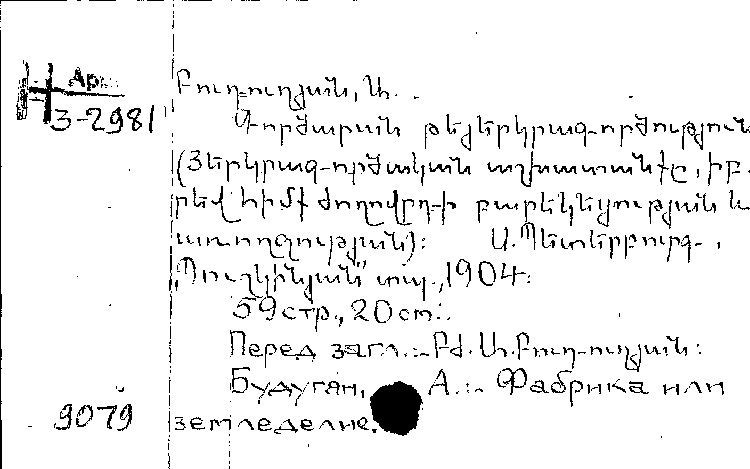 Арм.
3-2981
Բուդուղյան, Ա.
Գործարան թե երկրագործություն
(Յերկրագործական աշխատանքը, իբ-
րեվ հիմք ժողովրդի բարեկեցության և
առողջության): Ս. Պետերբուրգ,
„Պուշկինյան" տպ., 1904:
59 стр., 20 cm.:
Перед загл.:-Բժ. Ա. Բուդուղյան:
Будугян, А.:- Фабрика или
9079 земледелие.